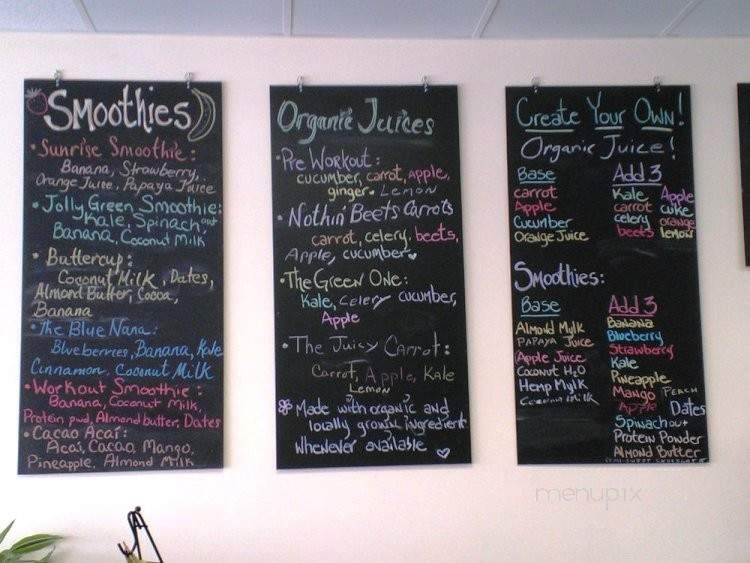 Smoothies
• Sunrise Smoothie:
Banana, Strawberry,
Orange Juice, Papaya Juice
• Jolly Green Smoothie:
Kale, Spinach out
Banana, Coconut Milk
• Buttercup:
Coconut Milk, Dates,
Almond Butter, Cocoa,
Banana
• The Blue Nana:
Blueberries, Banana, Kale
Cinnamon. Coconut Milk
• Workout Smoothie:
Banana, Coconut Milk,
Protein pwd, Almond butter, Dates
• Cacao Acaí:
Acaí, Cacao, Mango,
Pineapple, Almond Milk
Organic Juices
• Pre Workout:
cucumber, carrot, apple,
ginger • Lemon
• Nothin' Beets Carrots
carrot, celery, beets,
Apple, cucumber
• The Green One:
Kale, Celery cucumber,
Apple
• The Juicy Carrot:
Carrot, Apple, Kale
Lemon
Made with organic and
locally grown ingredient
Whenever available
Create Your Own!
Organic Juice!
Base
carrot
Apple
Cucumber
Orange Juice
Add 3
Kale Apple
carrot cuke
celery orange
beets lemon
Smoothies:
Base
Almond Mylk
Papaya Juice
Apple Juice
Coconut H2O
Hemp Mylk
Coconut Milk
Add 3
Banana
Blueberry
Strawberry
Kale
Pineapple
Mango Peach
Apple Dates
Spinach out
Protein Powder
Almond Butter
menupix